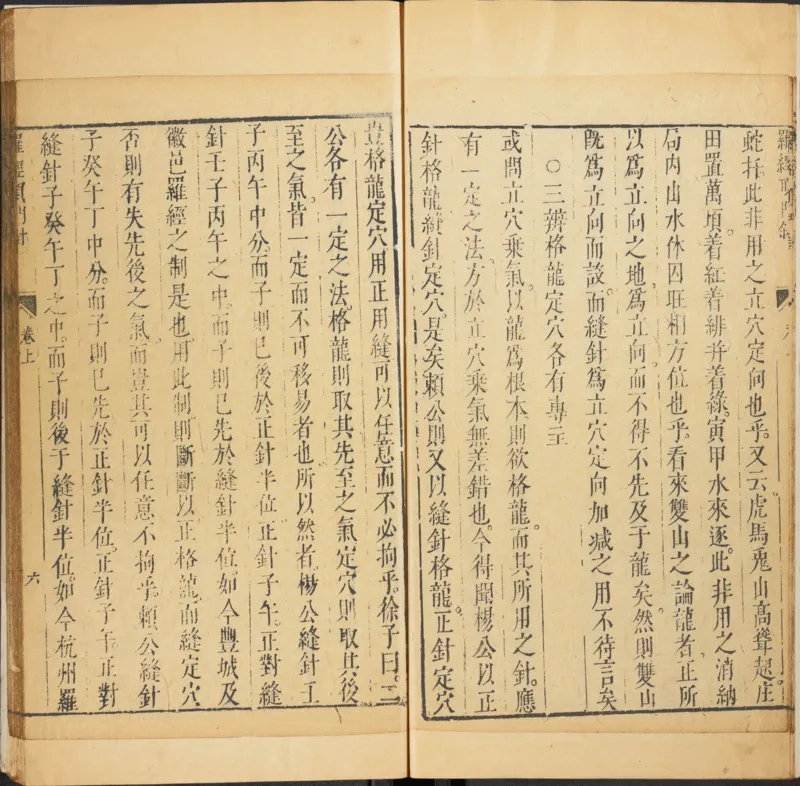 蛇托此非用之立穴定向也乎。又云虎馬兎山高聳起。庄
田置萬頃着紅着緋并着綠。寅甲水來逐。此非用之消納
局內山水休囚旺相方位也乎。看來雙山之論龍者。正所
以為立向之地。為立向而不得不先及于龍矣。然則雙山
既為立向而設。而縫針為立穴定向加減之用不待言矣
○三辨格龍定穴各有專主
或問立穴乘氣。以龍為根本。則欲格龍。而其所用之針。應
有一定之法。方於立穴乘氣無差錯也。今得聞楊公以正
針格龍縫針定穴是矣。賴公則又以縫針格龍。正針定穴
豈格龍定穴。用正用縫可以任意而不必拘乎。徐子曰。二
公各有一定之法。格龍則取其先至之氣。定穴則取其後
至之氣。皆一定而不可移易者也。所以然者。楊公縫針壬
子丙午中分。而子則已後於正針半位。正針子午。正對縫
針壬子丙午之中。而子則已先於縫針半位。如今豐城及
徽邑羅經之制是也。用此制則斷斷以正格龍。而縫定穴
否則有失先後之氣。而豈其可以任意不拘乎。賴公縫針
子癸午丁中分。而子則已先於正針半位。正針子午。正對
縫針子癸午丁之中。而子則後于縫針半位。如今杭州羅
卷上
六